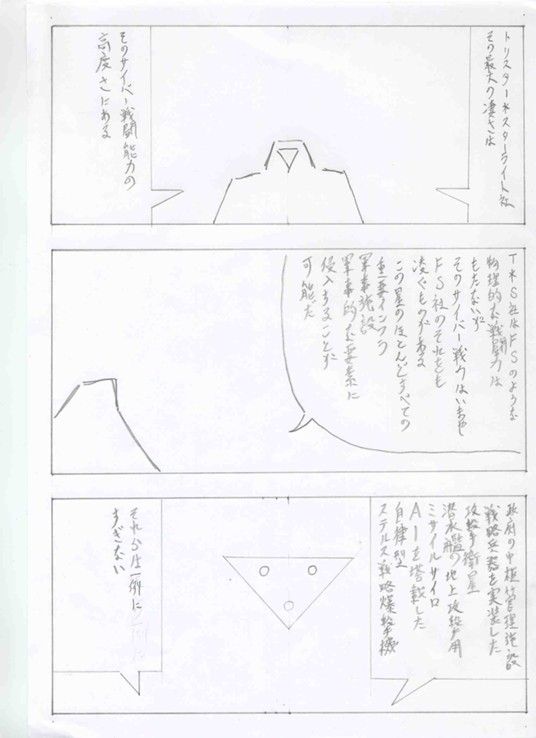 トリスター＊スターライト社
その最大の凄さは
そのサイバー戦闘能力の
高度さにある
T＊S社はFSのような
物理的な戦闘力は
もたないが
そのサイバー戦力はいまや
FS社のそれをも
凌ぐものがある
この星のほとんどすべての
重要インフラ
軍事施設
軍事的な要素に
侵入することが
可能だ
政府の中枢管理施設
戦略兵器を実装した
攻撃衛星
潜水艦の地上攻撃用
ミサイルサイロ
AIを搭載した
自律型
ステルス戦略爆撃機
それらは一例に
すぎない